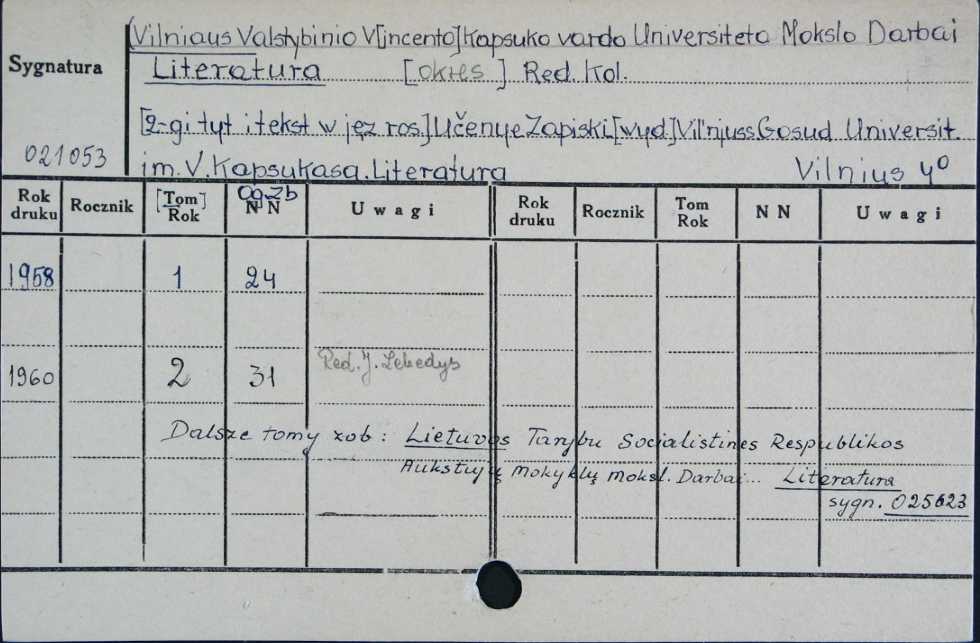 (Vilniaus Valstybinio V[incento] Kapsuko vardo Universiteto Mokslo Darbai
Sygnatura
Literatura [okres] Red. Kol.
[2-gi tyt i tekst w jęz ros.] Učenye Zapiski. [wyd] Vil'njuss Gosud. Universit.
021053
im. V. Kapsukasa. Literatura Vilnius 4º
Rok druku Rocznik [Tom] Rok Og.zb N N Uwagi Rok druku Rocznik Tom Rok N N Uwagi
1958 1 24
1960 2 31 Red. J. Lebedys
Dalsze tomy zob: Lietuvos Tarybu Socialistines Respublikos
Aukstujų mokyklų moksl. Darbai... Literatura
sygn. 025623